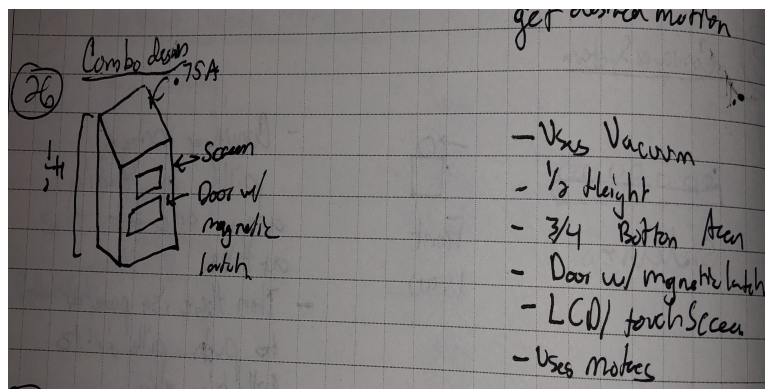 get desired motion
Combo design
26
.75A
Screen
Door w/
magnetic
latch
- Uses Vacuum
- 1/2 Height
- 3/4 Botton Area
- Door w/ mgnetic latch
- LCD/ touch Screen
- Uses motors